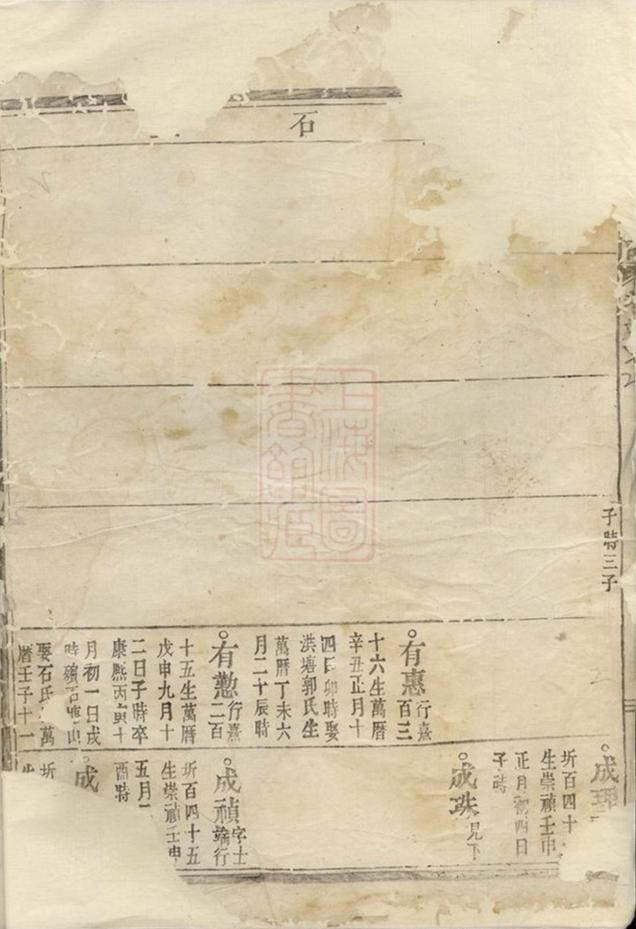 石
子時三子
有惠 行熹
百三
十六生萬曆
辛丑正月十
四日卯時娶
洪塘郭氏生
萬曆丁未六
月二十辰時
有懃 行熹
二百
十五生萬曆
戊申九月十
二日子時卒
康熙丙寅十
月初一日戌
時
娶石氏 萬
曆壬子十一
成理
圻百四十
生崇禎壬申
正月初四日
子時
成珠 見下
成禎 字士
端行
圻百四十五
生崇禎壬申
五月
酉時
成
圻
上海圖
書館藏